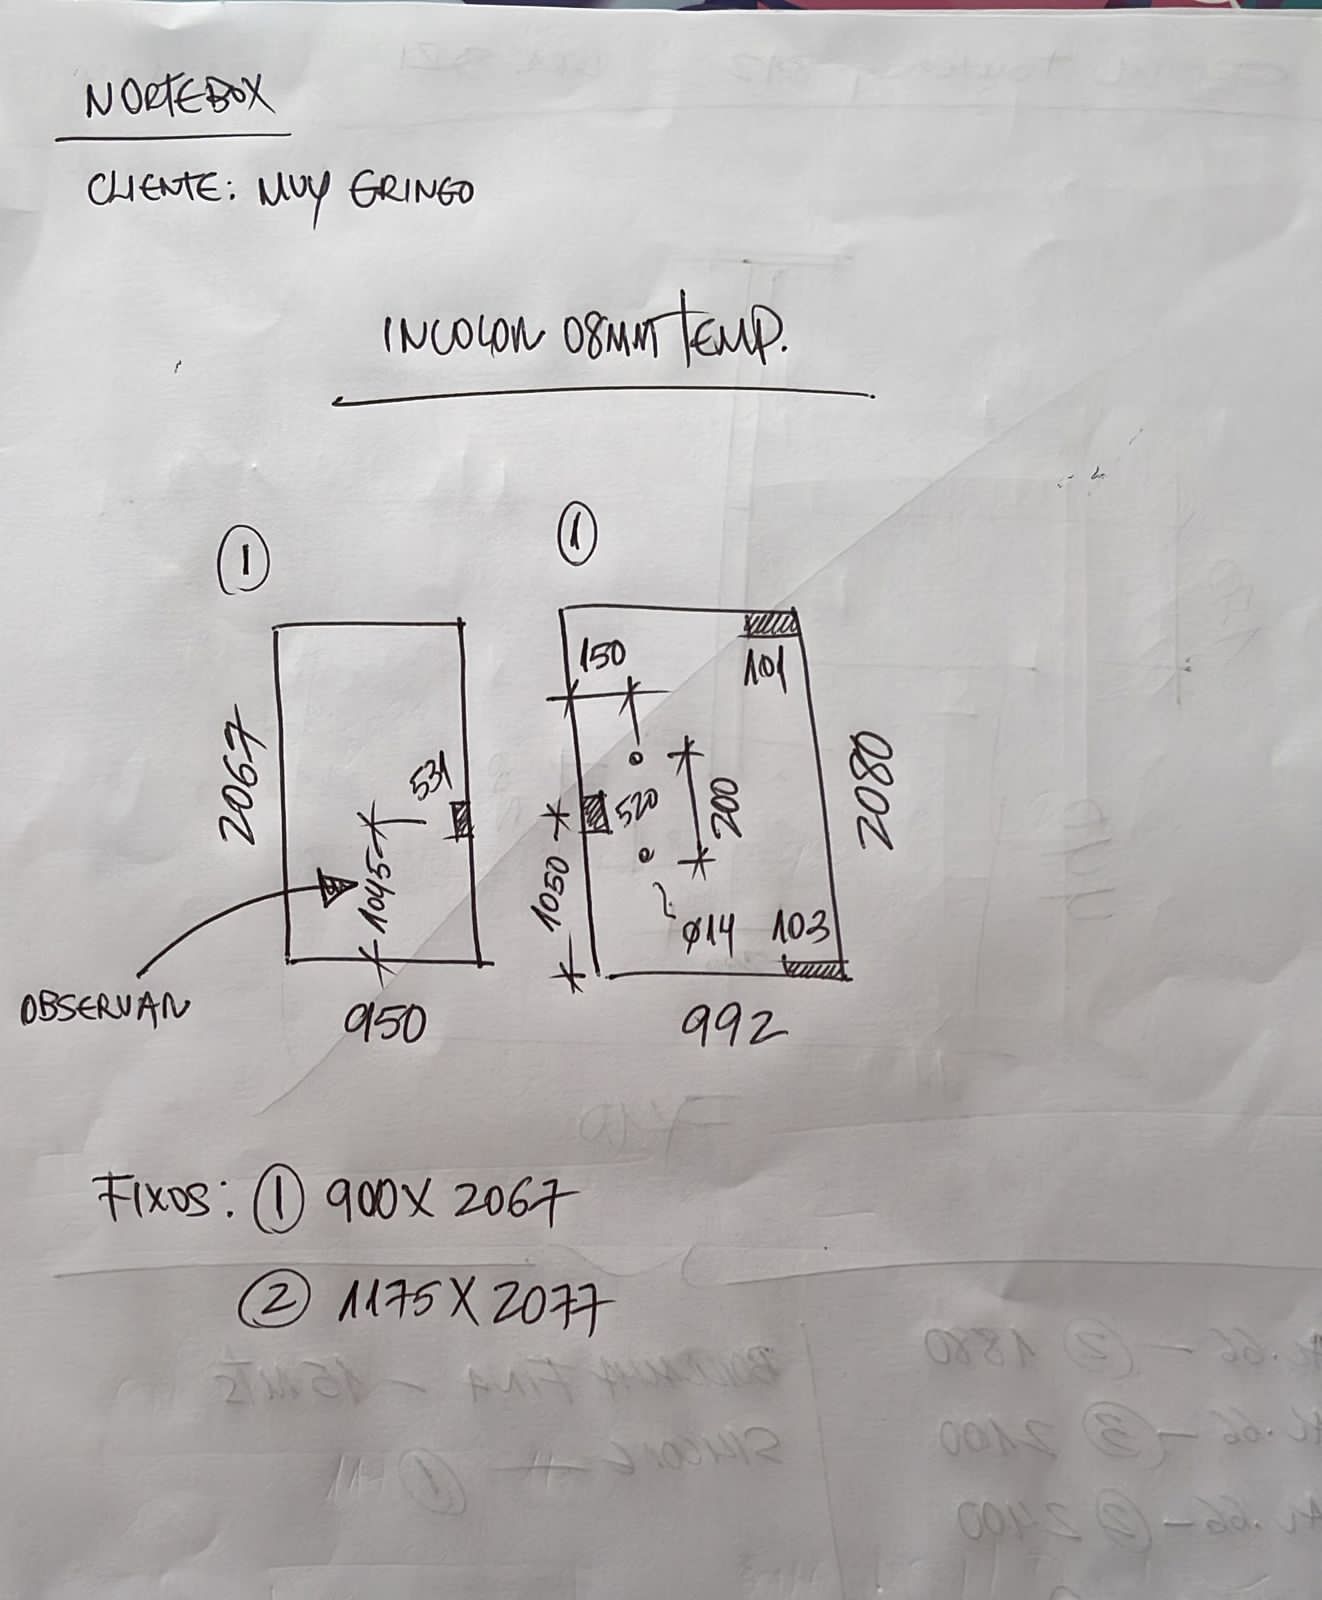 NORTEBOX
CLIENTE: MUY GRINGO
INCOLOR 08MM TEMP.
1
2067
531
1045
OBSERVAR
950
1
150
101
520
200
2080
1050
Ø14
103
992
FIXOS: 1 900X2067
2 1175X2077